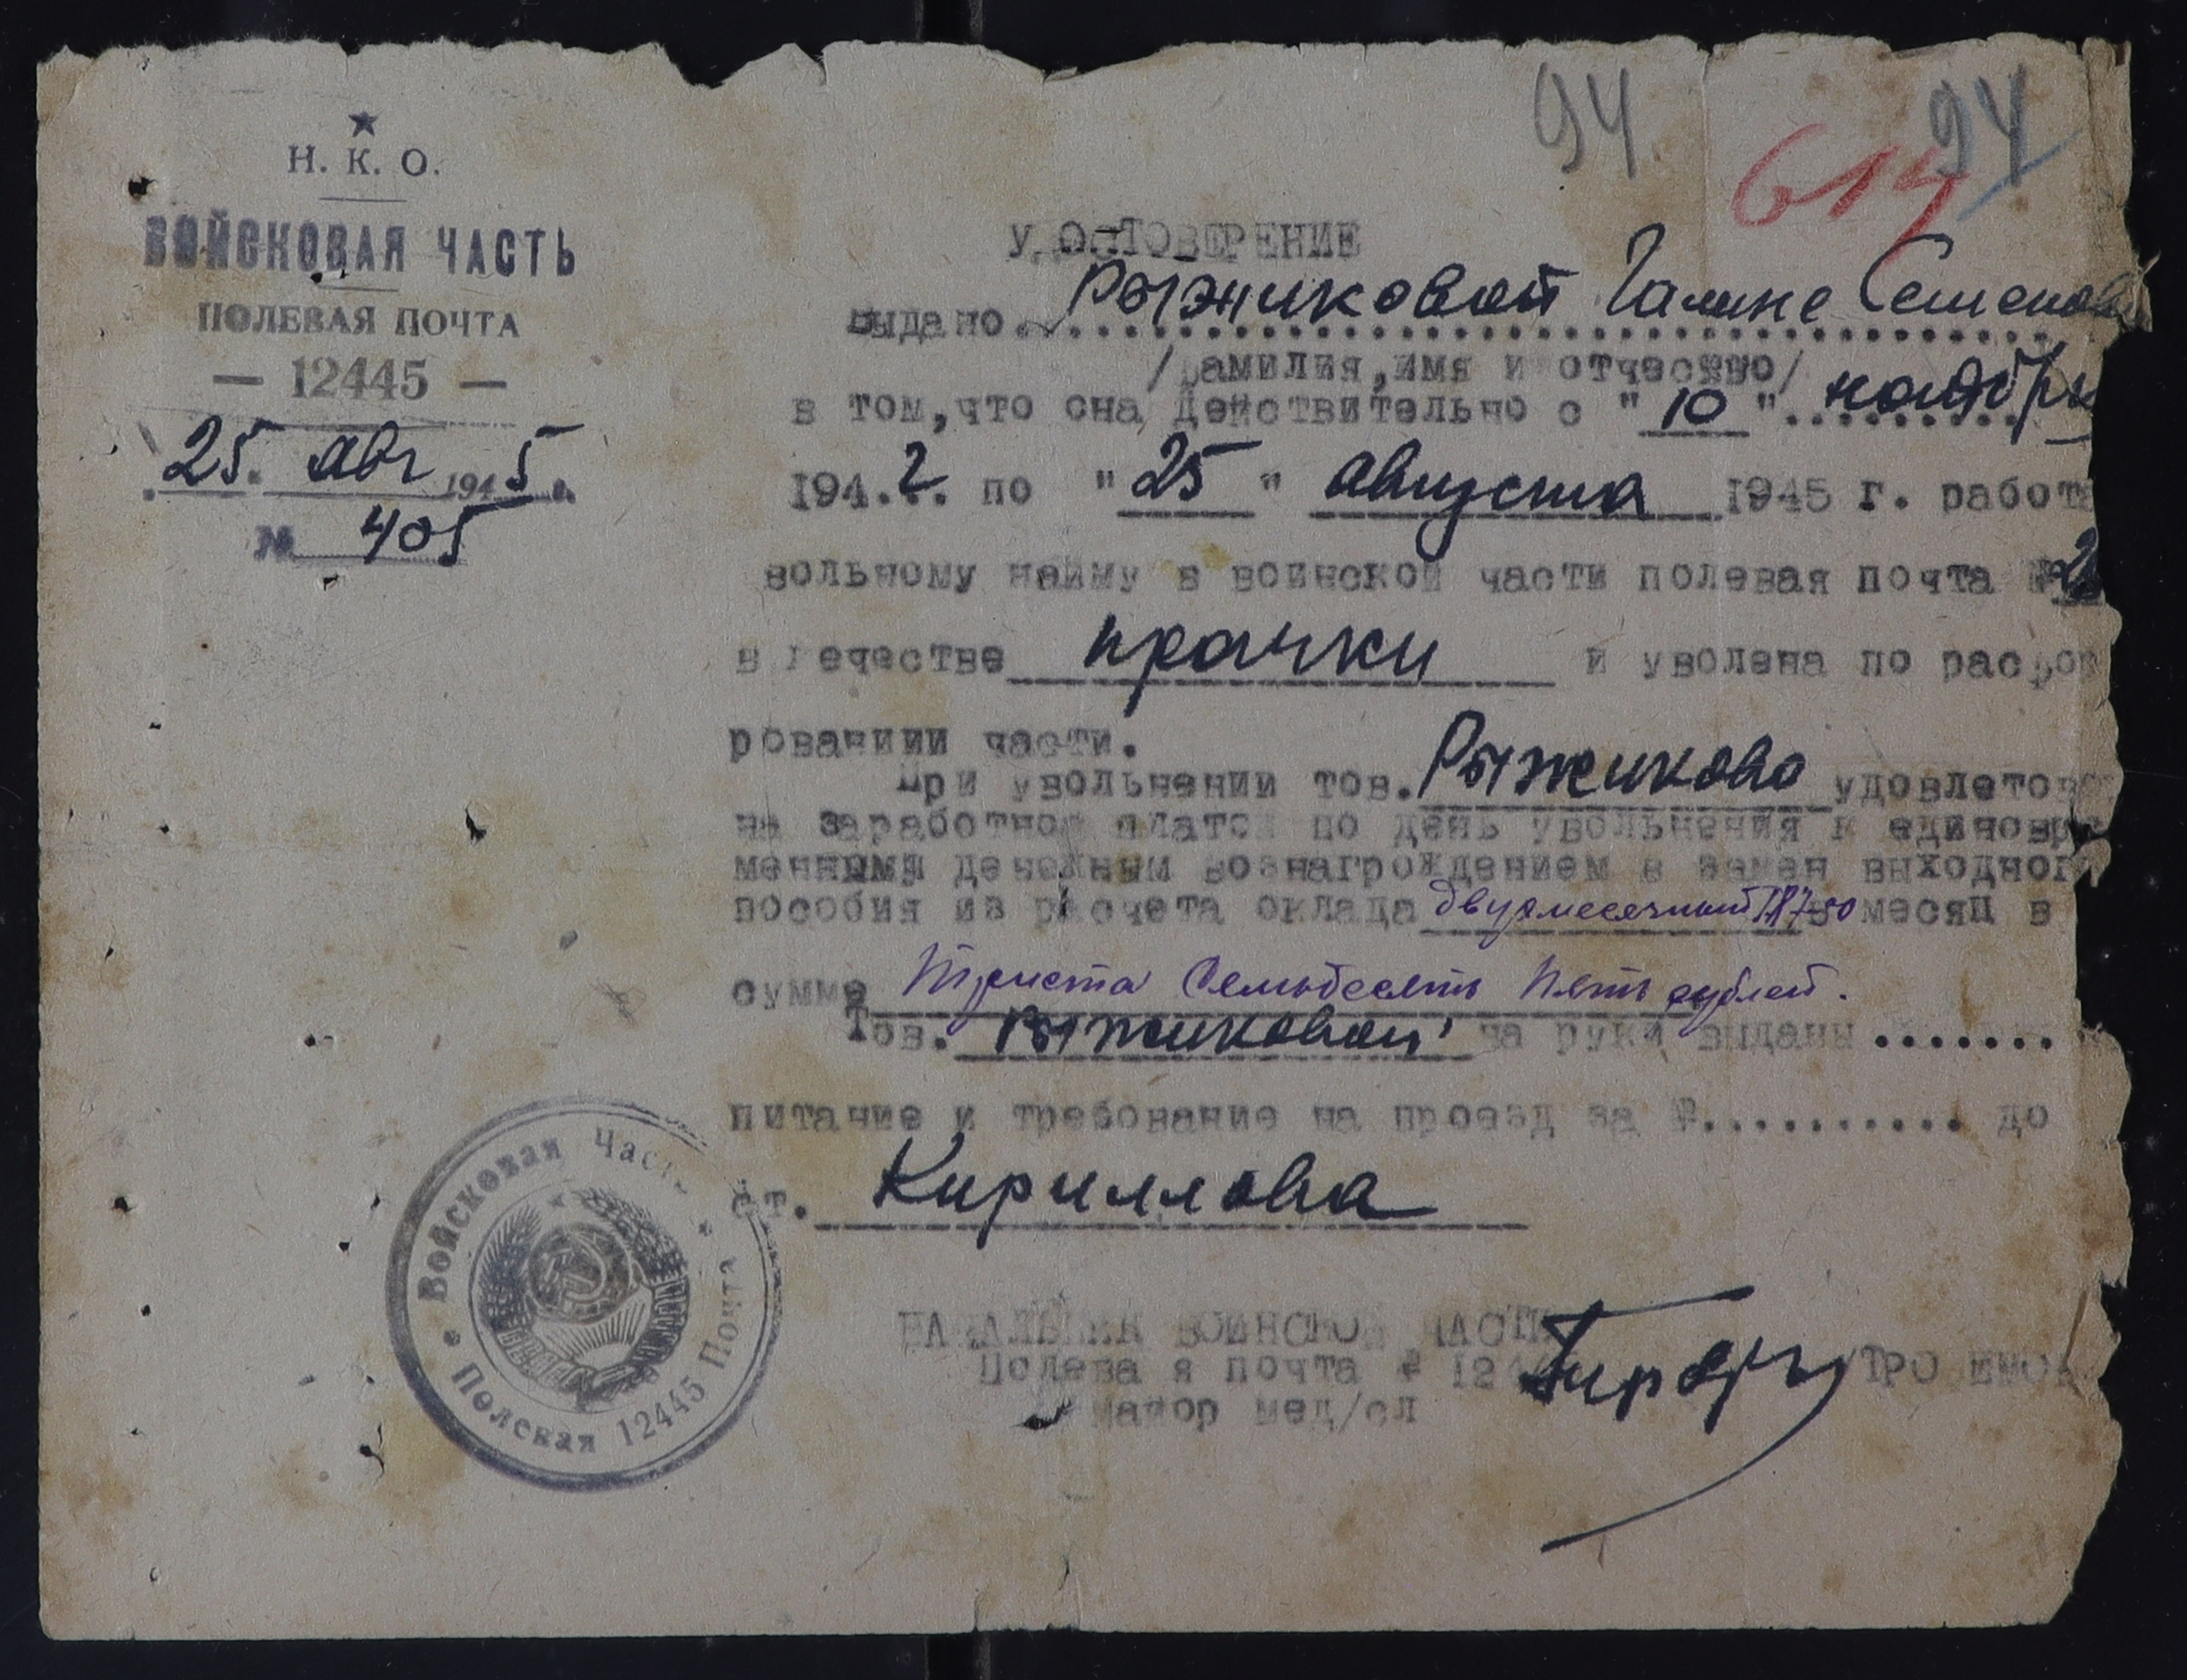 94
94
614
Н. К. О.
ВОЙСКОВАЯ ЧАСТЬ
ПОЛЕВАЯ ПОЧТА
— 12445 —
25. авг 1945 г.
№ 405
УДОСТОВЕРЕНИЕ
Выдано Рыжиковой Галине Семенов
/фамилия, имя и отчество/
в том, что она действительно с "10" ноября
1942. по "25" августа 1945 г. работа
вольному найму в воинской части полевая почта №
в качестве прачки и уволена по расфор
рованиии части.
При увольнении тов. Рыжикова удовлетов
на заработной платой по день увольнения и единовре
менными денежным вознагрождением в замен выходног
пособия из расчета оклада двухмесячный 187-50 месяц в
сумме Триста Семьдесять Пять рублей.
Тов. Рыжиковой на руки выданы .......
питание и требование на проезд за №........... до
ст. Кириллова
НАЧАЛЬНИК ВОИНСКОЙ ЧАСТИ
Полевая почта №
майор мед/сл
Войсковая Часть
Полевая 12445 Почта